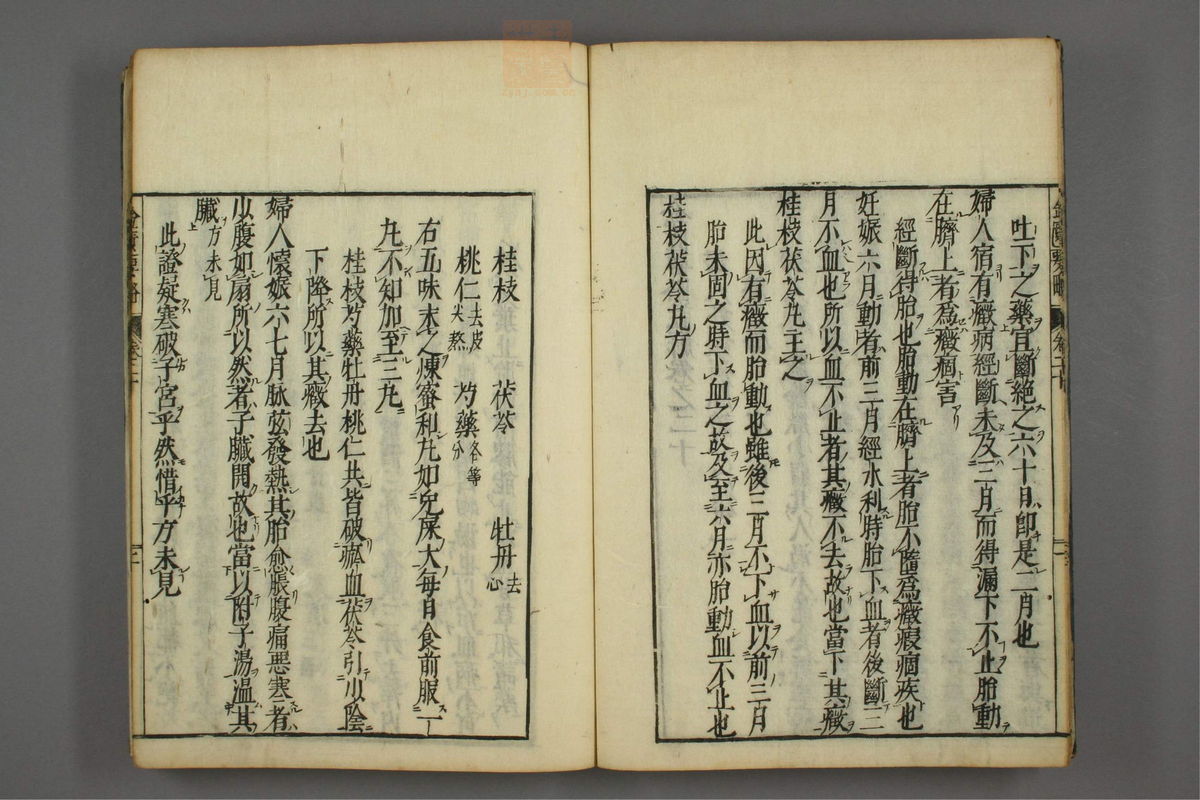 吐下之藥宜斷絶之六十日即是二月也
婦人宿有癥病經斷未及三月而得漏下不止胎動
在臍上者為癥痼害
經斷得胎也胎動在臍上者胎不墮為癥瘕痼疾也
妊娠六月動者前三月經水利時胎下血者後斷三
月不血也所以血不止者其癥不去故也當下其癥
桂枝茯苓丸主之
此因有癥而胎動也雖後三月不下血以前三月
胎未固之時下血之故及至六月亦胎動血不止也
桂枝茯苓丸方
桂枝 茯苓 牡丹去心
桃仁去皮尖熬 芍藥各等分
右五味末之煉蜜和丸如兔屎大每日食前服一
丸不知加至三丸
桂枝芍藥牡丹桃仁共皆破瘀血茯苓引少陰
下降所以其癥去也
婦人懷娠六七月脉弦發熱其胎愈脹腹痛惡寒者
少腹如扇所以然者子臟開故也當以附子湯溫其
臟方未見
此證疑寒破子宮乎然惜乎方未見